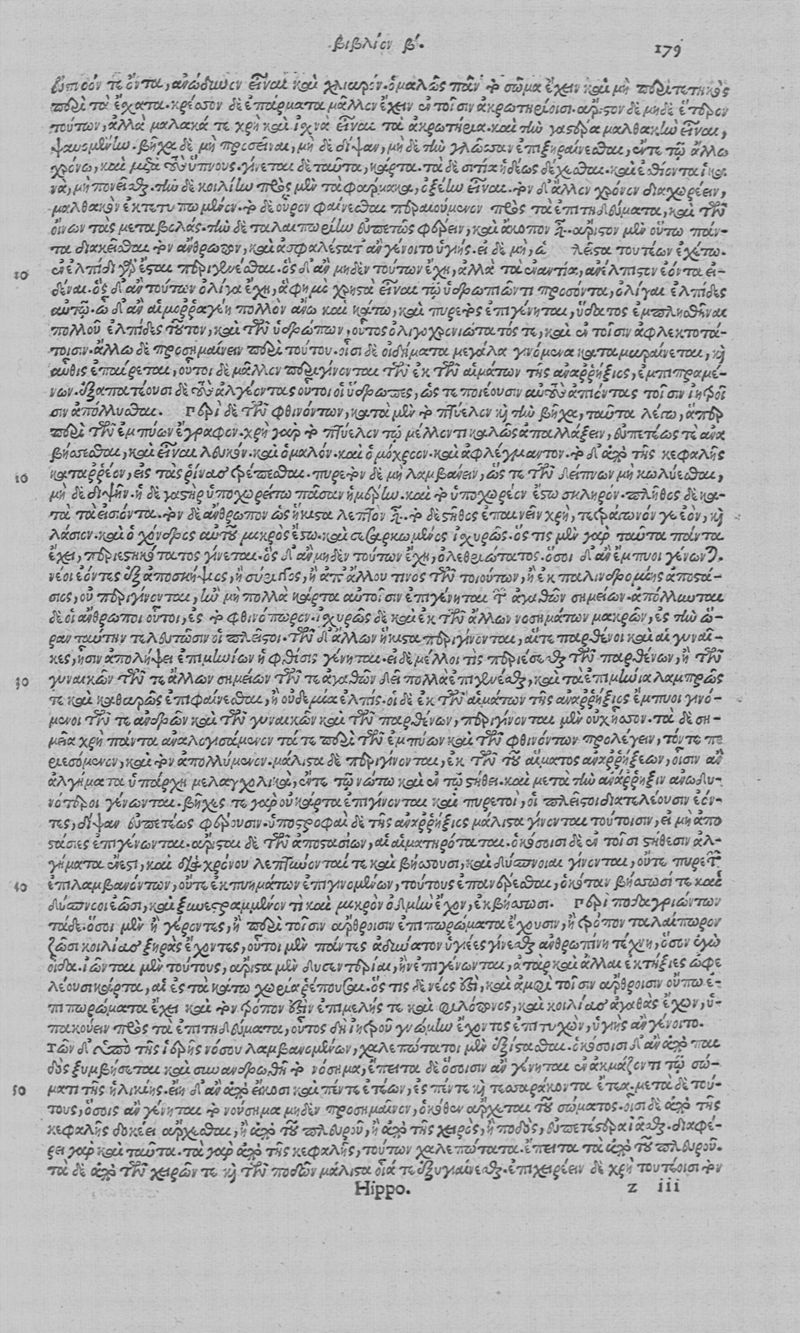 βιβλίον β΄. 179
εὔπνοόν τε ὄντα, ἀνώδυνον εἶναι καὶ χλιαρόν. ὁμαλῶς πᾶν τὸ σῶμα ἔχειν καὶ μὴ περιτετηκὸς
περὶ τὰ ἔσχατα. κρέσσον δὲ ἐπάρματα μᾶλλον ἔχειν ἐν τοῖσιν ἀκρωτηρίοισι. ἄριστον δὲ μηδὲ ἕτερον
τούτων, ἀλλὰ μαλακά τε χρὴ καὶ ἰσχνὰ εἶναι τὰ ἀκρωτήρια. καὶ τὴν γαστέρα μαλθακὴν εἶναι,
ψαυομένην. βῆχα δὲ μὴ προσεῖναι, μὴ δὲ δίψαν, μὴ δὲ τὴν γλῶσσαν ἐπιξηραίνεσθαι, ἔν τε τῷ ἄλλῳ
χρόνῳ, καὶ μετὰ τοὺς ὕπνους. γίνεται δὲ ταῦτα, κάρτα. τὰ δὲ σιτία ἡδέως δέχεσθαι. καὶ ἐσθίοντα ἱκα
νὰ, μὴ πονεῖσθαι. τὴν δὲ κοιλίην πρὸς μὲν τὰ φάρμακα, ὀξείην εἶναι. τὸν δ' ἄλλον χρόνον διαχωρέειν,
μαλθακὸν ἐκτετυπωμένον. τὸ δὲ οὖρον φαίνεσθαι περαιούμενον πρὸς τὰ ἐπιτηδεύματα, καὶ τῶν
οἴνων τὰς μεταβολάς. τὴν δὲ ταλαιπωρίην εὐπετῶς φέρειν, καὶ ἄκοπον εἶναι. ἄριστον μὲν οὕτω πάν-
τα διακεῖσθαι τὸν ἄνθρωπον, καὶ ἀσφαλέστατ' ἂν γένοιτο ὑγιής. εἰ δὲ μὴ, ὡς πλεῖστα τουτέων ἐχέτω.
10 ἐν ἐλπίδι γὰρ ἔσται περιγενέσθαι. ὃς δ' ἂν μηδὲν τούτων ἔχῃ, ἀλλὰ τὰ ἐναντία, ἀνέλπιστον ἐόντα εἰ-
δέναι. ὃς δ' ἂν τούτων ὀλίγα ἔχῃ, ἅ φημι χρηστὰ εἶναι τῷ ὑδρωπιῶντι προσόντα, ὀλίγαι ἐλπίδες
αὐτῷ. ᾧ δ' ἂν αἱμορραγέῃ πολλὸν ἄνω καὶ κάτω, καὶ πυρετὸς ἐπιγένηται, ὕδατος ἐμπλησθῆναι
πολλοῦ ἐλπίδες τοῦτον, καὶ τῶν ὑδρώπων, οὗτος ὀλιγοχρονιώτατός τε, καὶ ἐν τοῖσιν ἀφλεκτοτά-
τοισιν. ἄλλῳ δὲ προσημαίνειν περὶ τούτου. οἷσι δὲ οἰδήματα μεγάλα γινόμενα καταμαραίνεται, καὶ
αὖθις ἐπαίρεται, οὗτοι δὲ μᾶλλον περιγίνονται τῶν ἐκ τῶν αἱμάτων τῆς ἀναρρήξιος, ἐμπιπραμέ-
νων. ἐξαπατέουσι δὲ τοὺς ἀλγέοντας οὗτοι οἱ ὕδρωπες, ὥς τε ποιέουσιν αὐτοὺς ἀπιόντας τοῖσιν ἰητροῖ
σιν ἀπόλλυσθαι. Περὶ δὲ τῶν φθινόντων, κατὰ μὲν τὸ πτύελον καὶ τὴν βῆχα, ταῦτα λέγω, ἅπερ
περὶ τῶν ἐμπύων ἔγραφον. χρὴ γὰρ τὸ πτύελον τῷ μέλλοντι καλῶς ἀπαλλάξειν, εὐπετέως τε ἀνα
βήσσεσθαι, καὶ εἶναι λευκὸν. καὶ ὁμαλόν. καὶ ὁμόχροον. καὶ ἀφλέγμαντον. τὸ δ' ἀπὸ τῆς κεφαλῆς
10 καταρρέον, εἰς τὰς ῥῖνας τρέπεσθαι. πυρετὸν δὲ μὴ λαμβάνειν, ὥς τε τῶν δείπνων μὴ κωλύεσθαι,
μὴ δὲ διψῆν. ἡ δὲ γαστὴρ ὑποχωρείτω πᾶσαν ἡμέρην. καὶ τὸ ὑποχωρέον ἔστω σκληρόν. πλῆθος δὲ κα-
τὰ τὰ εἰσιόντα. τὸν δὲ ἄνθρωπον ὡς ἥκιστα λεπτὸν εἶναι. τὸ δὲ στῆθος ἐπαινεῖν χρὴ, τετράγωνόν γε ἐὸν, καὶ
λάσιον. καὶ ὁ χόνδρος αὐτοῦ μικρὸς ἔστω. καὶ σεσαρκωμένος ἰσχυρῶς. ὅς τις μὲν γὰρ ταῦτα πάντα
ἔχει, περιεστηκότατος γίνεται. ὃς δ' ἂν μηδὲν τούτων ἔχῃ, ὀλεθριώτατος. ὅσοι δ' ἂν ἔμπυοι γένωνται
νέοι ἐόντες ἐξ ἀποσκήψιος, ἢ σύριγγος, ἢ ἀπ' ἄλλου τινὸς τῶν τοιούτων, ἢ ἐκ παλινδρομίης ἀποστά-
σιος, οὐ περιγίνονται, ἢν μὴ πολλὰ κάρτα αὐτοῖσιν ἐπιγένηται τῶν ἀγαθῶν σημείων. ἀπόλλυνται
δὲ οἱ ἄνθρωποι οὗτοι, ἐς τὸ φθινόπωρον. ἰσχυρῶς δὲ καὶ ἐκ τῶν ἄλλων νοσημάτων μακρῶν, ἐς τὴν ὥ-
ρην ταύτην τελευτῶσιν οἱ πλεῖστοι. τῶν δ' ἄλλων ἥκιστα περιγίνονται, αἵ τε παρθένοι καὶ αἱ γυναῖ-
κες, ᾗσιν ἀπολήψει ἐπιμηνίων ἡ φθίσις γένηται. εἰ δὲ μέλλοι τὶς περιέσεσθαι τῶν παρθένων, ἢ τῶν
30 γυναικῶν τῶν τε ἄλλων σημείων τῶν τε ἀγαθῶν δεῖ πολλὰ ἐπιγενέσθαι, καὶ τὰ ἐπιμήνια λαμπρῶς
τε καὶ καθαρῶς ἐπιφαίνεσθαι, ἢ οὐδεμία ἐλπίς. οἱ δὲ ἐκ τῶν αἱμάτων τῆς ἀναρρήξιος ἔμπυοι γινό-
μενοι τῶν τε ἀνδρῶν καὶ τῶν γυναικῶν καὶ τῶν παρθένων, περιγίνονται μὲν οὐχ ἧσσον. τὰ δὲ ση-
μεῖα χρὴ πάντα ἀναλογισάμενον τά τε περὶ τῶν ἐμπύων καὶ τῶν φθινόντων προλέγειν, τόν τε πε
ριεσόμενον, καὶ τὸν ἀπολλύμενον. μάλιστα δὲ περιγίνονται, ἐκ τῶν τοῦ αἵματος ἀναρρήξεων, οἷσιν ἂν
ἀλγήματα ὑπάρχῃ μελαγχολικὰ, ἔν τε τῷ νώτῳ καὶ ἐν τῷ στήθει. καὶ μετὰ τὴν ἀνάρρηξιν ἀνωδυ-
νότεροι γένωνται. βῆχές τε γὰρ οὐ κάρτα ἐπιγίνονται καὶ πυρετοὶ, οἱ πλεῖστοι διατελέουσιν ἐόν-
τες, δίψαν εὐπετέως φέρουσιν. ὑποστροφαὶ δὲ τῆς ἀναρρήξιος μάλιστα γίνονται τούτοισιν, εἰ μὴ ἀπο
στάσιες ἐπιγένωνται. ἄρισται δὲ τῶν ἀποστασίων, αἱ αἱματηρόταται. ὁκόσοισι δὲ ἐν τοῖσι στήθεσιν ἀλ-
γήματα ἔνεστι, καὶ διὰ χρόνου λεπτύνονταί τε καὶ βήσσουσι, καὶ δύσπνοιαι γίνονται, οὔτε πυρετῶν
40 ἐπιλαμβανόντων, οὔτε ἐκπυημάτων ἐπιγινομένων, τούτους ἐπανέρεσθαι, ὁκόταν βήσσωσί τε καὶ
δύσπνοοι ἔωσι, καὶ ξυνεστραμμένον τὶ καὶ μικρὸν ὀδμὴν ἔχον, ἐκβήσσωσι. Περὶ ποδαγριώντων
τάδε. ὅσοι μὲν ἢ γέροντες, ἢ περὶ τοῖσιν ἄρθροισιν ἐπιπωρώματα ἔχουσιν, ἢ τρόπον ταλαίπωρον
ζῶσι κοιλίας ξηρὰς ἔχοντες, οὗτοι μὲν πάντες ἀδύνατον ὑγιέες γίνεσθαι ἀνθρωπίνῃ τέχνῃ, ὅσον ἐγὼ
οἶδα. ἰῶνται μὲν τούτους, ἄριστα μὲν δυσεντερίαι, ἢν ἐπιγένωνται, ἀτὰρ καὶ ἄλλαι ἐκτήξιες ὠφε
λέουσι κάρτα, αἳ ἐς τὰ κάτω χωρία ῥέπουσαι. ὅς τις δὲ νέος ἐστὶ, καὶ ἀμφὶ τοῖσιν ἄρθροισιν οὔπω ἐ-
πιπωρώματα ἔχει καὶ τὸν τρόπον ἐστὶν ἐπιμελής τε καὶ φιλόπονος, καὶ κοιλίας ἀγαθὰς ἔχων, ὑ-
πακούειν πρὸς τὰ ἐπιτηδεύματα, οὗτος δὴ ἰητροῦ γνώμην ἔχοντος ἐπιτυχὼν, ὑγιὴς ἂν γένοιτο.
Τῶν δ' ὑπὸ τῆς ἱερῆς νόσου λαμβανομένων, χαλεπώτατοι μὲν ἐξίστασθαι. ὁκόσοισι δ' ἂν ἀπὸ παι
δὸς ξυμβήσεται καὶ συνανδρωθῇ τὸ νόσημα, ἔπειτα δὲ ὅσοισιν ἂν γένηται ἐν ἀκμάζοντι τῷ σώ-
50 ματι τῆς ἡλικίης. εἴη δ' ἂν ἀπὸ εἴκοσι καὶ πέντε ἐτέων, ἐς πέντε καὶ τεσσαράκοντα ἔτεα. μετὰ δὲ τού-
τους, ὅσοις ἂν γένηται τὸ νούσημα μηδὲν προσημαῖνον, ὁκόθεν ἄρχεται τοῦ σώματος. οἷσι δὲ ἀπὸ τῆς
κεφαλῆς δοκέει ἄρχεσθαι, ἢ ἀπὸ τοῦ πλευροῦ, ἢ ἀπὸ τῆς χειρὸς, ἢ ποδὸς, εὐπετέστερα ἰᾶσθαι. διαφέ-
ρει γὰρ καὶ ταῦτα. τὰ γὰρ ἀπὸ τῆς κεφαλῆς, τούτων χαλεπώτατα. ἔπειτα τὰ ἀπὸ τοῦ πλευροῦ.
τὰ δὲ ἀπὸ τῶν χειρῶν τε καὶ τῶν ποδῶν μάλιστα οἷά τε ἐξυγιαίνεσθαι. ἐπιχειρέειν δὲ χρὴ τουτέοισι τὸν
Hippo. z iii